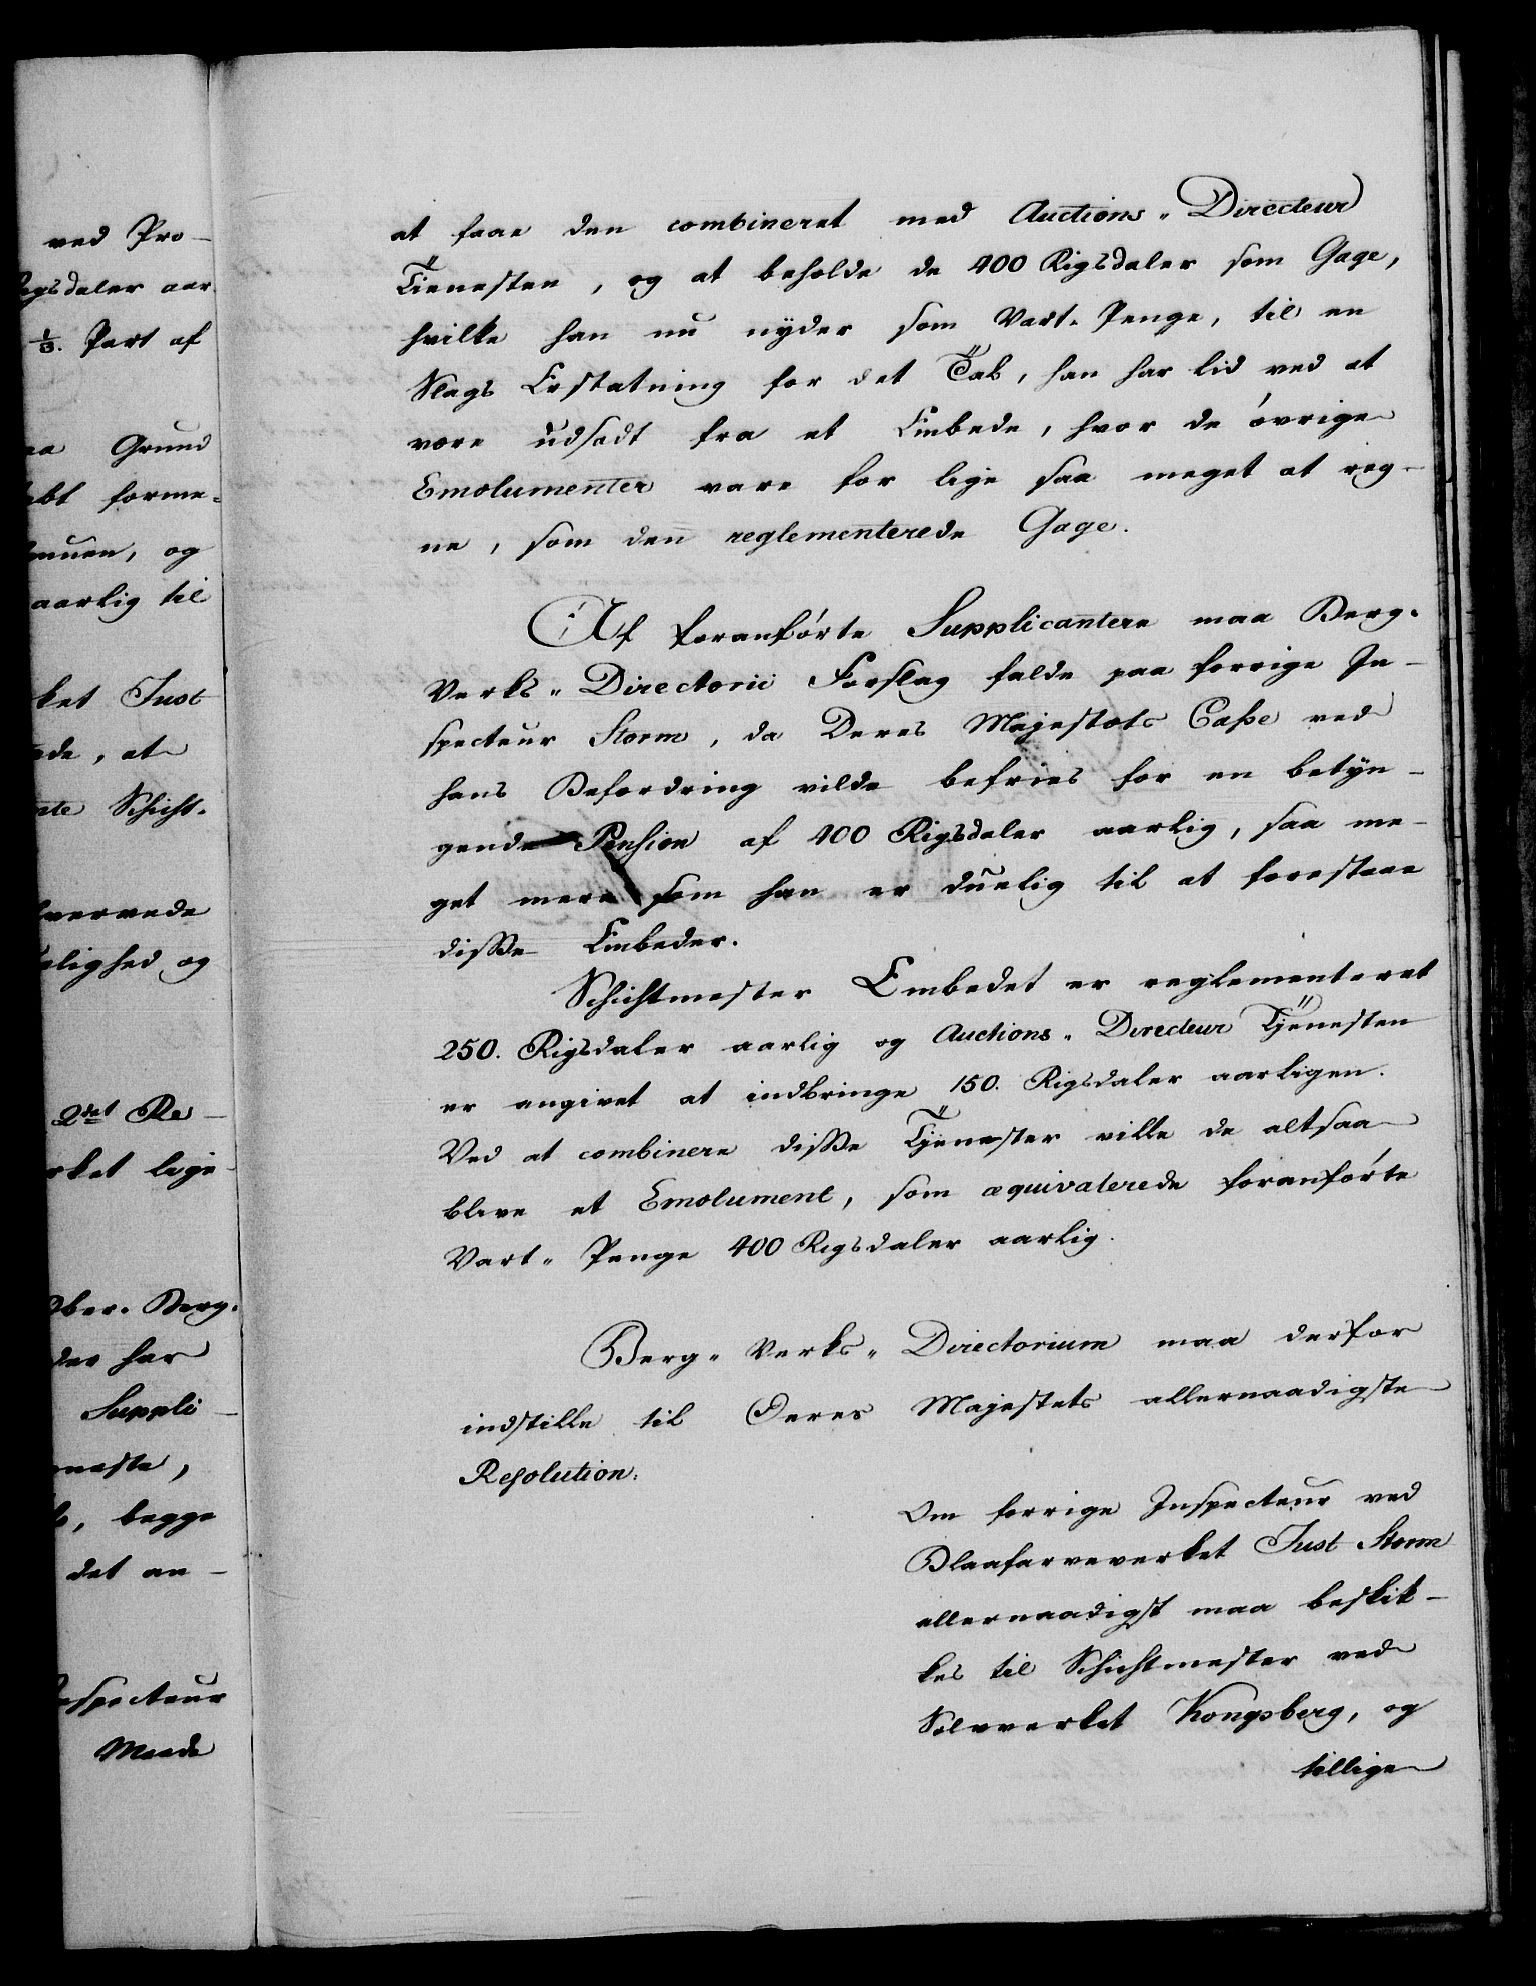 ved Pro-
Rigsdaler aar
1/3. Part af
Grund
forme-
og
aarlig til
ket Just
at
Schicht-
lighed og
2det Re-
ket lige
Ober-Berg-
der har
Suppli-
begge
det an-
Inspecteur
Maade
at faae den combineret med Auctions-Directeur
Tienesten, og at beholde de 400 Rigsdaler som Gage,
hvilke han nu nÿder som Vart-Penge, til en
Slags Erstatning for det Tab, han har lid ved at
være udsadt fra et Embede, hvor de óvrige
Emolumenter vare for lige saa meget at reg-
ne, som den reglementerede Gage.
Af foranfórte Supplicantere maa Berg-
Verks-Directorii Forslag falde paa forrige In-
specteur Storm, da Deres Majestæts Casse ved
hans Befordring vilde befries for en betÿn-
gende Pension af 400 Rigsdaler aarlig, saa me-
get mere som han er duelig til at forestaae
disse Embeder.
Schichtmester Embedet er reglementeret
250. Rigsdaler aarlig og Auctions-Directeur Tjenesten
er angivet at indbringe 150. Rigsdaler aarligen.
Ved at combinere disse Tjenester ville de altsaa
blive et Emolument, som æquivalerede foranfórte
Vart-Penge 400 Rigsdaler aarlig.
Berg-Verks-Directorium maa derfor
indstille til Deres Majestets allernaadigste
Resolution:
Om forrige Inspecteur ved
Blaafarveverket Just Storm
allernaadigst maa beskik-
kes til Schichtmester ved
Sólvverket Kongsberg, og
tillige